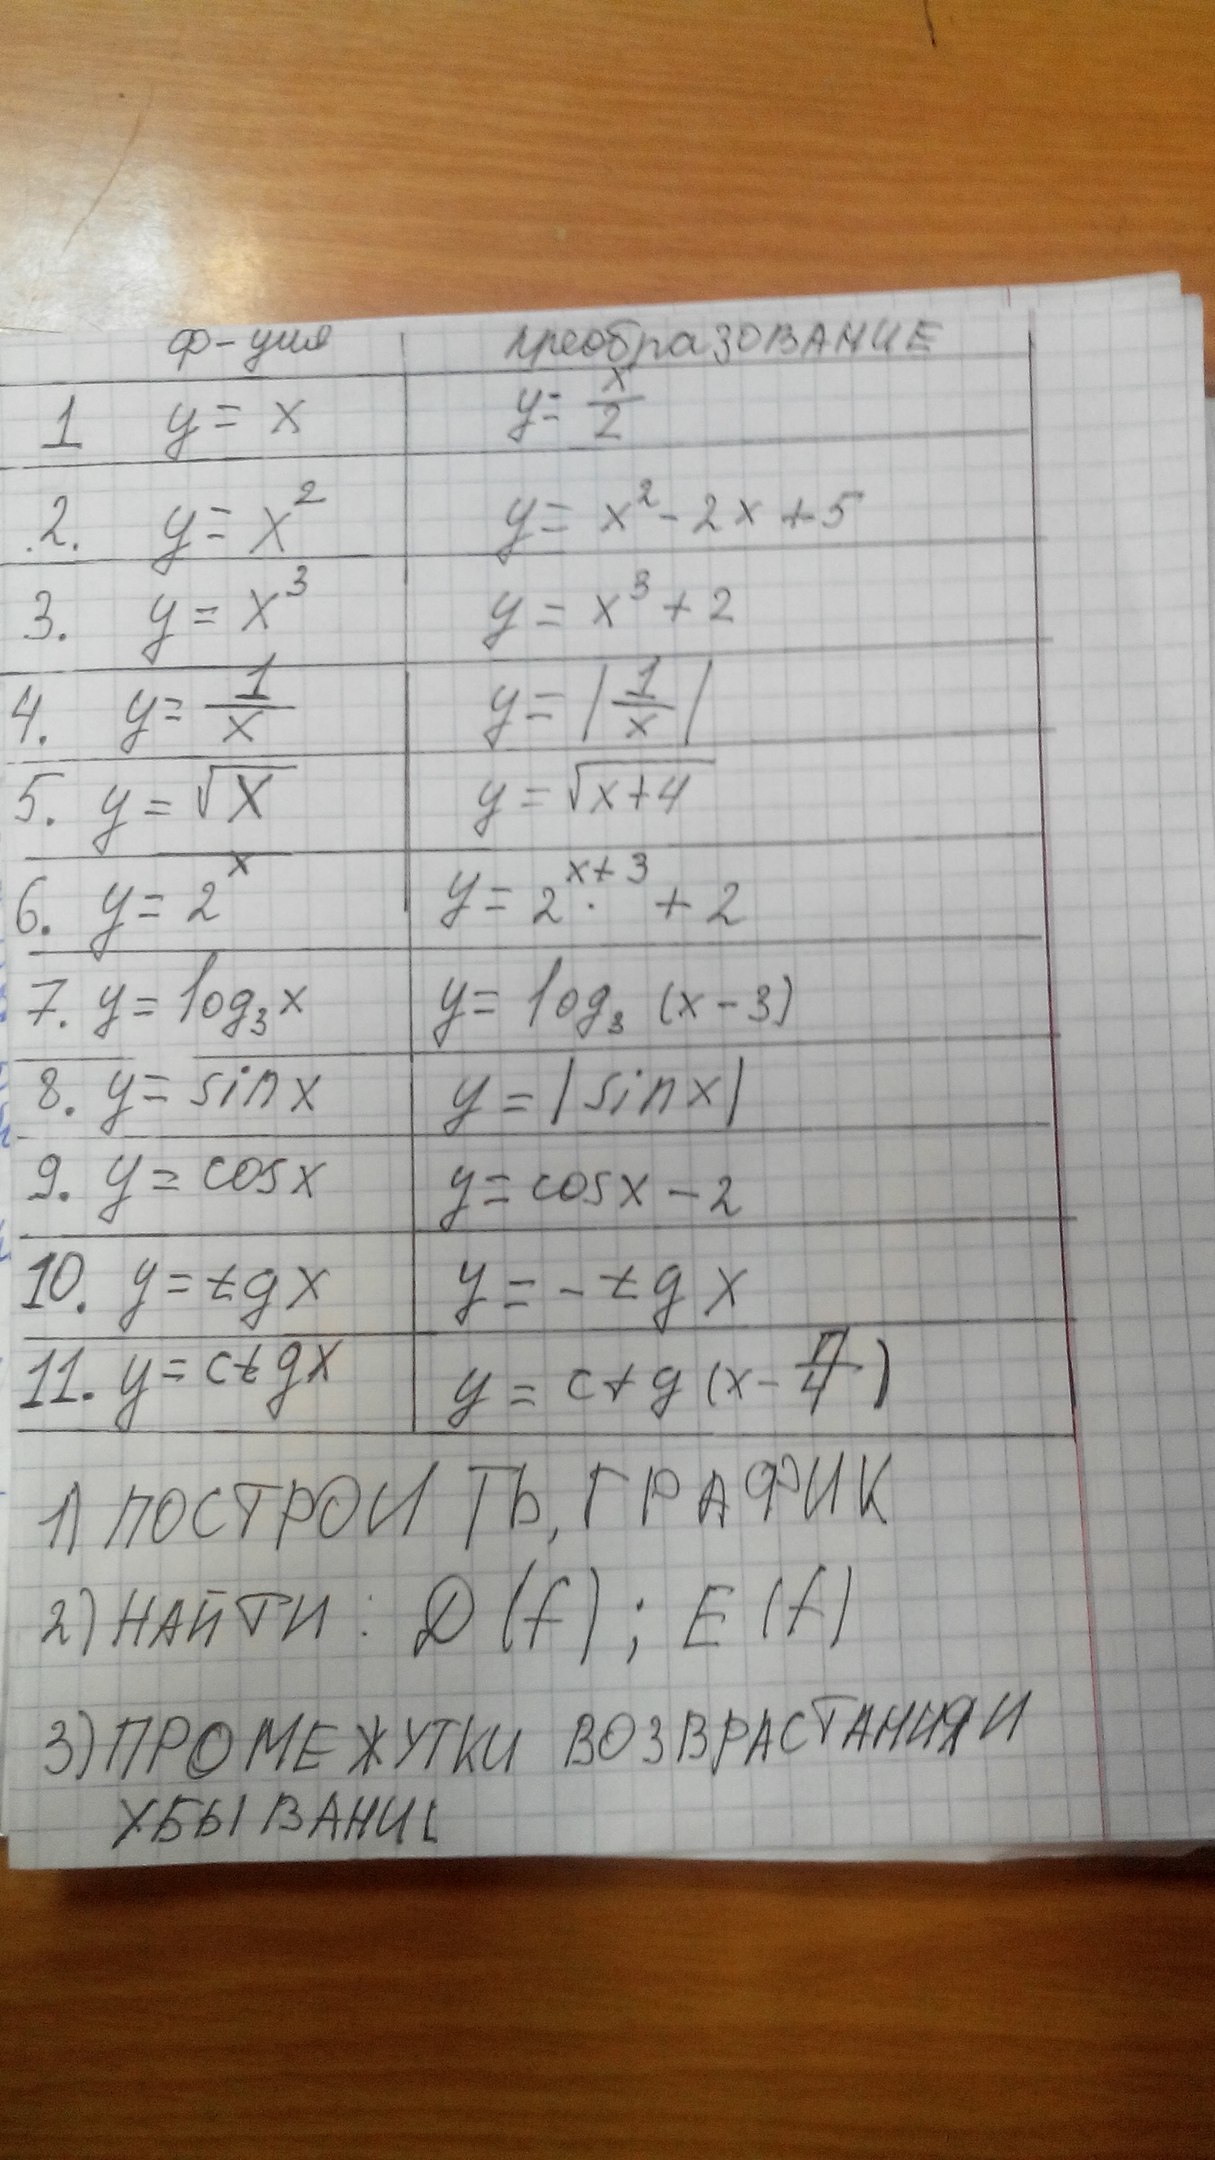 ф-ция преобразОВАНИЕ
1 y = x y = x/2
2. y = x² y = x² - 2x + 5
3. y = x³ y = x³ + 2
4. y = 1/x y = |1/x|
5. y = √x y = √x+4
6. y = 2ˣ y = 2ˣ⁺³ + 2
7. y = log₃x y = log₃ (x - 3)
8. y = sinx y = |sinx|
9. y = cosx y = cosx - 2
10. y = tgx y = - tg x
11. y = ctgx y = ctg (x - π/4)
1) ПОСТРОИТЬ, ГРАФИК
2) НАЙТИ: D(f); E(f)
3) ПРОМЕЖУТКИ ВОЗВРАСТАНИЯ И
УБЫВАНИ